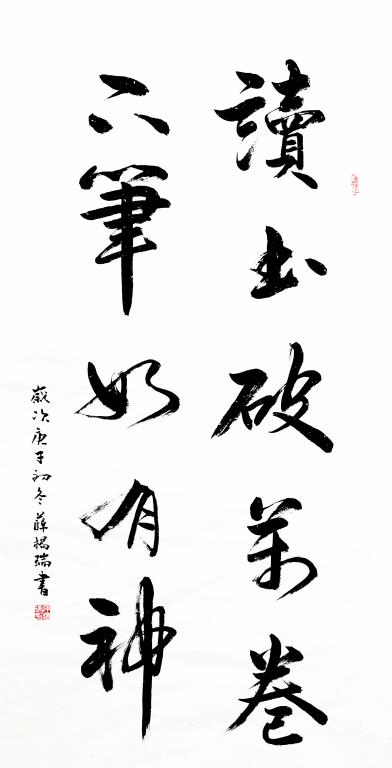 讀書破萬卷
下筆如有神
歲次庚子初冬薛瑞書